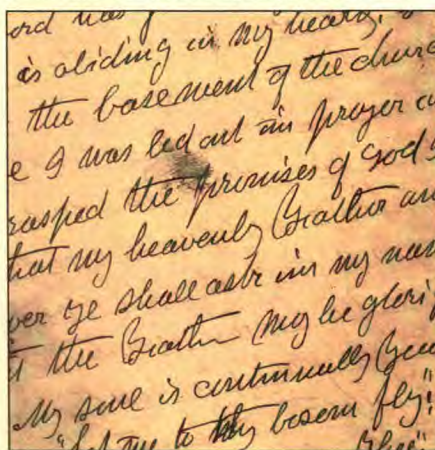 ord was
is abiding in my heart,
the basement of the churc
e I was led out in prayer a
rasped the promises of God's
that my heavenly Feather an
ver ye shall ask in my nam
t the Feather may be glori
My soul is continually
"Let me to thy bosom fly"